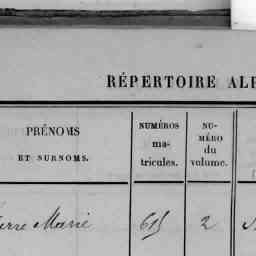 RÉPERTOIRE ALP
PRÉNOMS
ET SURNOMS.
NUMÉROS
ma-
tricules.
NU-
MÉRO
du
volume.
ierre Marie 615 2